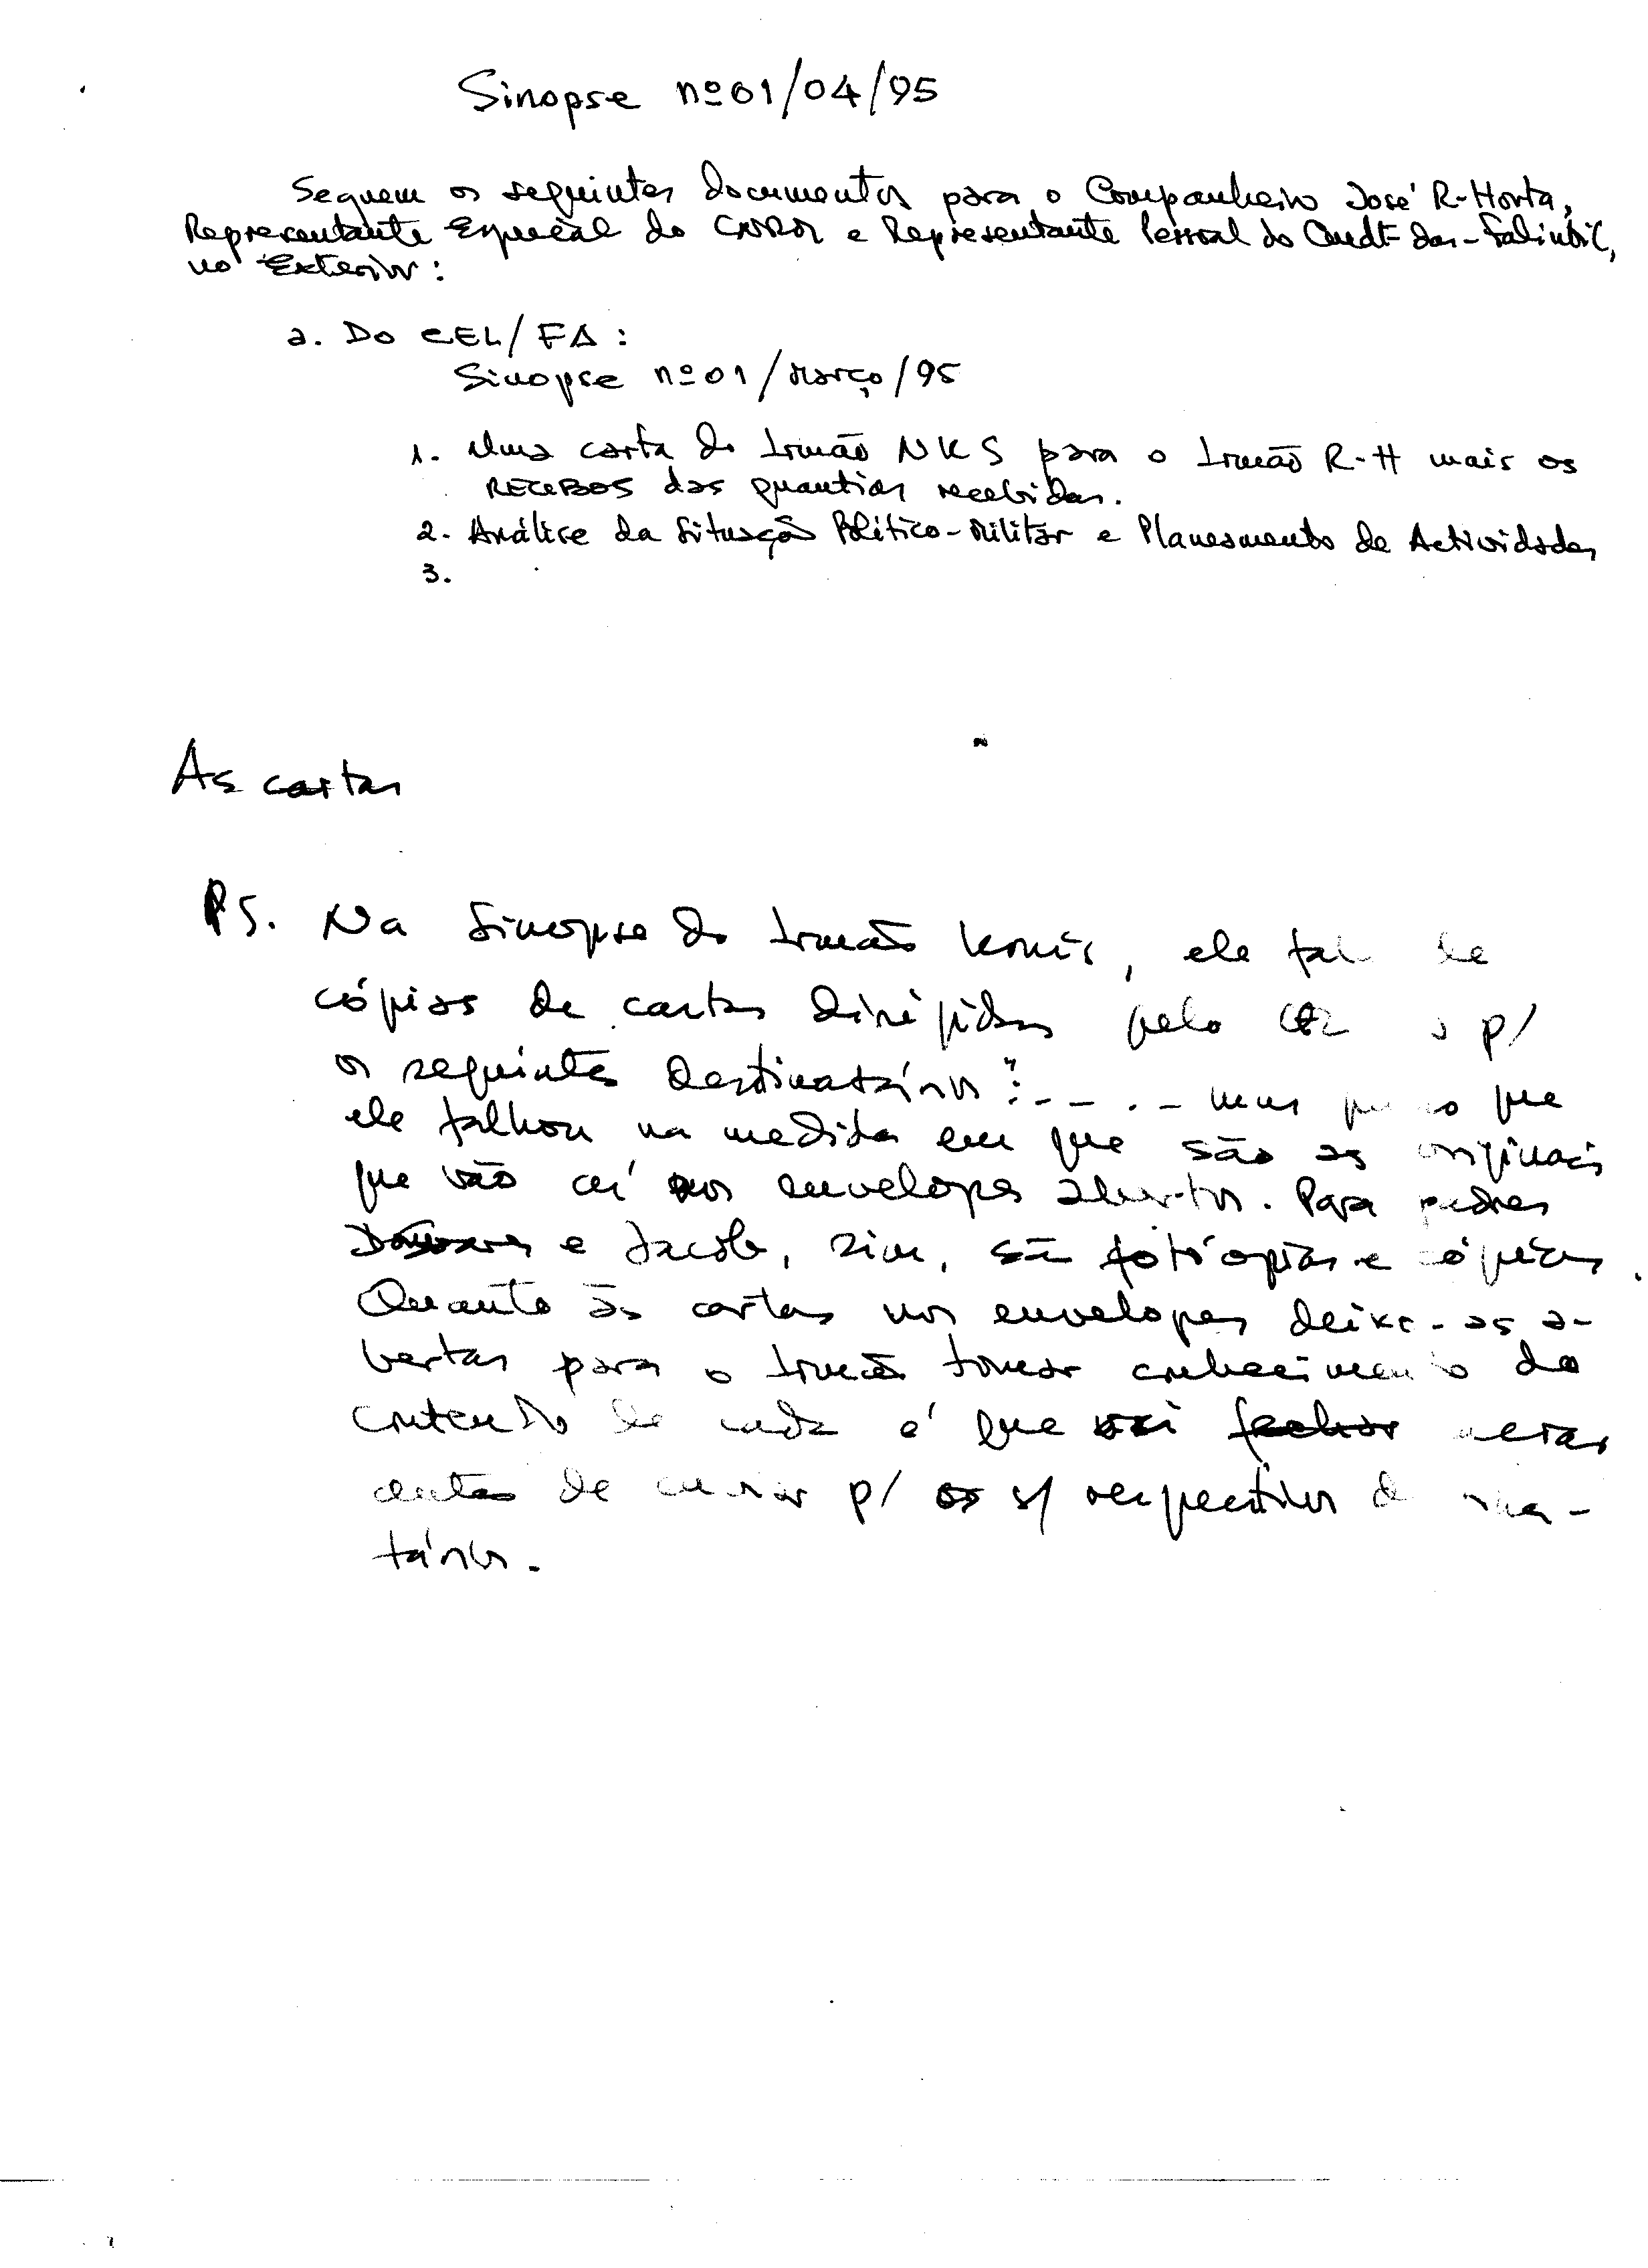 Sinopse nº 01/04/95
Seguem os seguintes documentos para o Companheiro José R-Horta,
Representante Especial do CNRM e Representante Pessoal do Cmdt das-Falintil,
no Exterior:
a. Do CEL/FA:
Sinopse nº 01/Março/95
1. Uma carta do Irmão NKS para o Irmão R-H mais os
RECIBOS das quantias recebidas.
2. Análise da Situação Político-Militar e Planeamento de Actividades
3.
As cartas
PS. Na Sinopse do Irmão Konis, ele fala de
cópias de cartas dirigidas pelo p/
os seguintes destinatários: - - . - mas que
ele falhou na medida em que são as originais
que vão aí nos envelopes abertos. Para padres
e Jacob, sim, são fotocópias e cópias.
Quanto às cartas nos envelopes deixe-as a-
bertas para o Irmão tomar conhecimento do
conteúdo de cada e é que vai fechar
antes de enviar p/ os s/ respectivos destina-
tários.